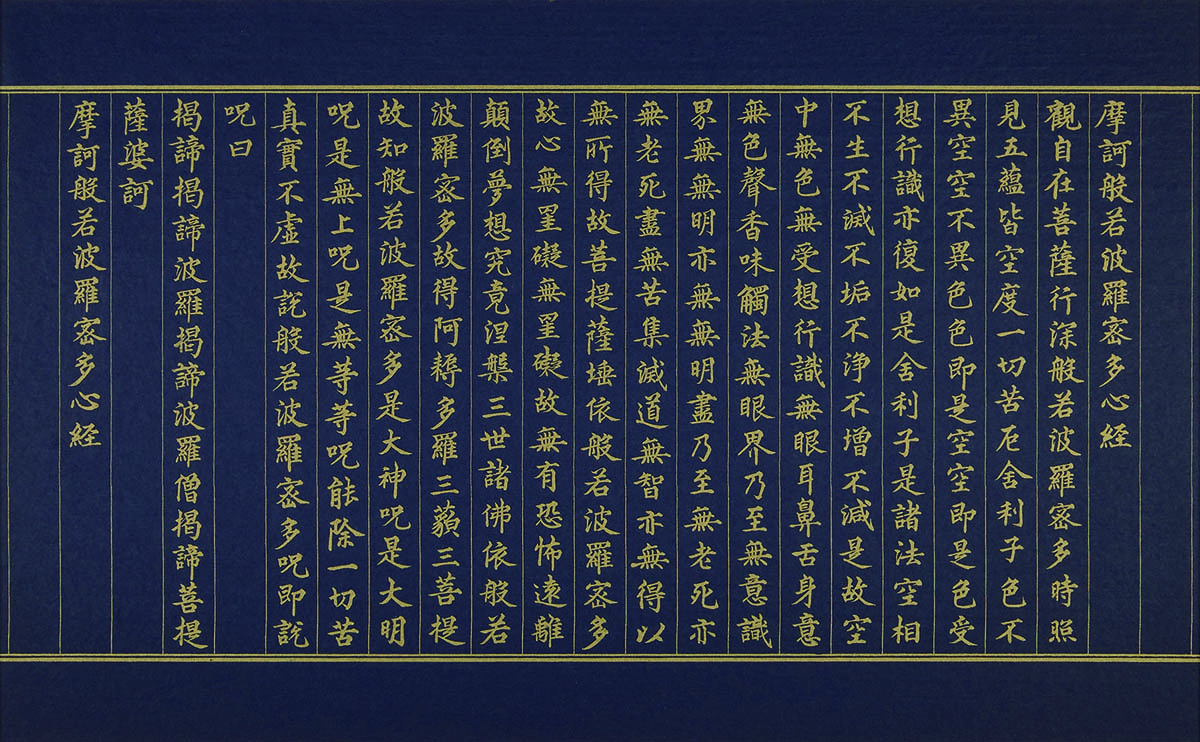 摩訶般若波羅蜜多心経
觀自在菩薩行深般若波羅蜜多時照
見五蘊皆空度一切苦厄舍利子色不
異空空不異色色即是空空即是色受
想行識亦復如是舍利子是諸法空相
不生不滅不垢不浄不增不減是故空
中無色無受想行識無眼耳鼻舌身意
無色聲香味觸法無眼界乃至無意識
界無無明亦無無明盡乃至無老死亦
無老死盡無苦集滅道無智亦無得以
無所得故菩提薩埵依般若波羅蜜多
故心無罣礙無罣礙故無有恐怖遠離
顛倒夢想究竟涅槃三世諸佛依般若
波羅蜜多故得阿耨多羅三藐三菩提
故知般若波羅蜜多是大神呪是大明
呪是無上呪是無等等呪能除一切苦
真實不虛故說般若波羅蜜多呪即說
呪曰
揭諦揭諦波羅揭諦波羅僧揭諦菩提
薩婆訶
摩訶般若波羅蜜多心経